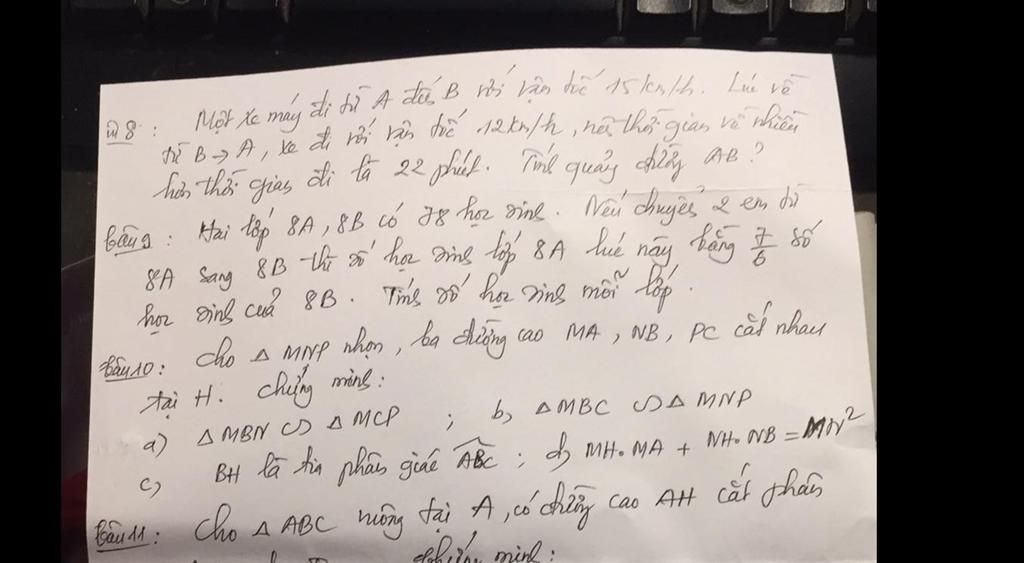 Câu 8: Một xe máy đi từ A đến B với vận tốc 15km/h. Lúc về
từ B → A, xe đi với vận tốc 12km/h, nên thời gian về nhiều
hơn thời gian đi là 22 phút. Tính quãng đường AB?
Câu 9: Hai lớp 8A, 8B có 78 học sinh. Nếu chuyển 2 em từ
8A sang 8B thì số học sinh lớp 8A lúc này bằng 7/6 số
học sinh của 8B. Tính số học sinh mỗi lớp.
Câu 10: Cho △ MNP nhọn, ba đường cao MA, NB, PC cắt nhau
tại H. Chứng minh:
a) △ MBN ∽ △ MCP ; b, △ MBC ∽ △ MNP
c, BH là tia phân giác ABC ; d, MH.MA + NH.NB = MN²
Câu 11: Cho △ ABC vuông tại A, có đường cao AH cắt phân
chứng minh: